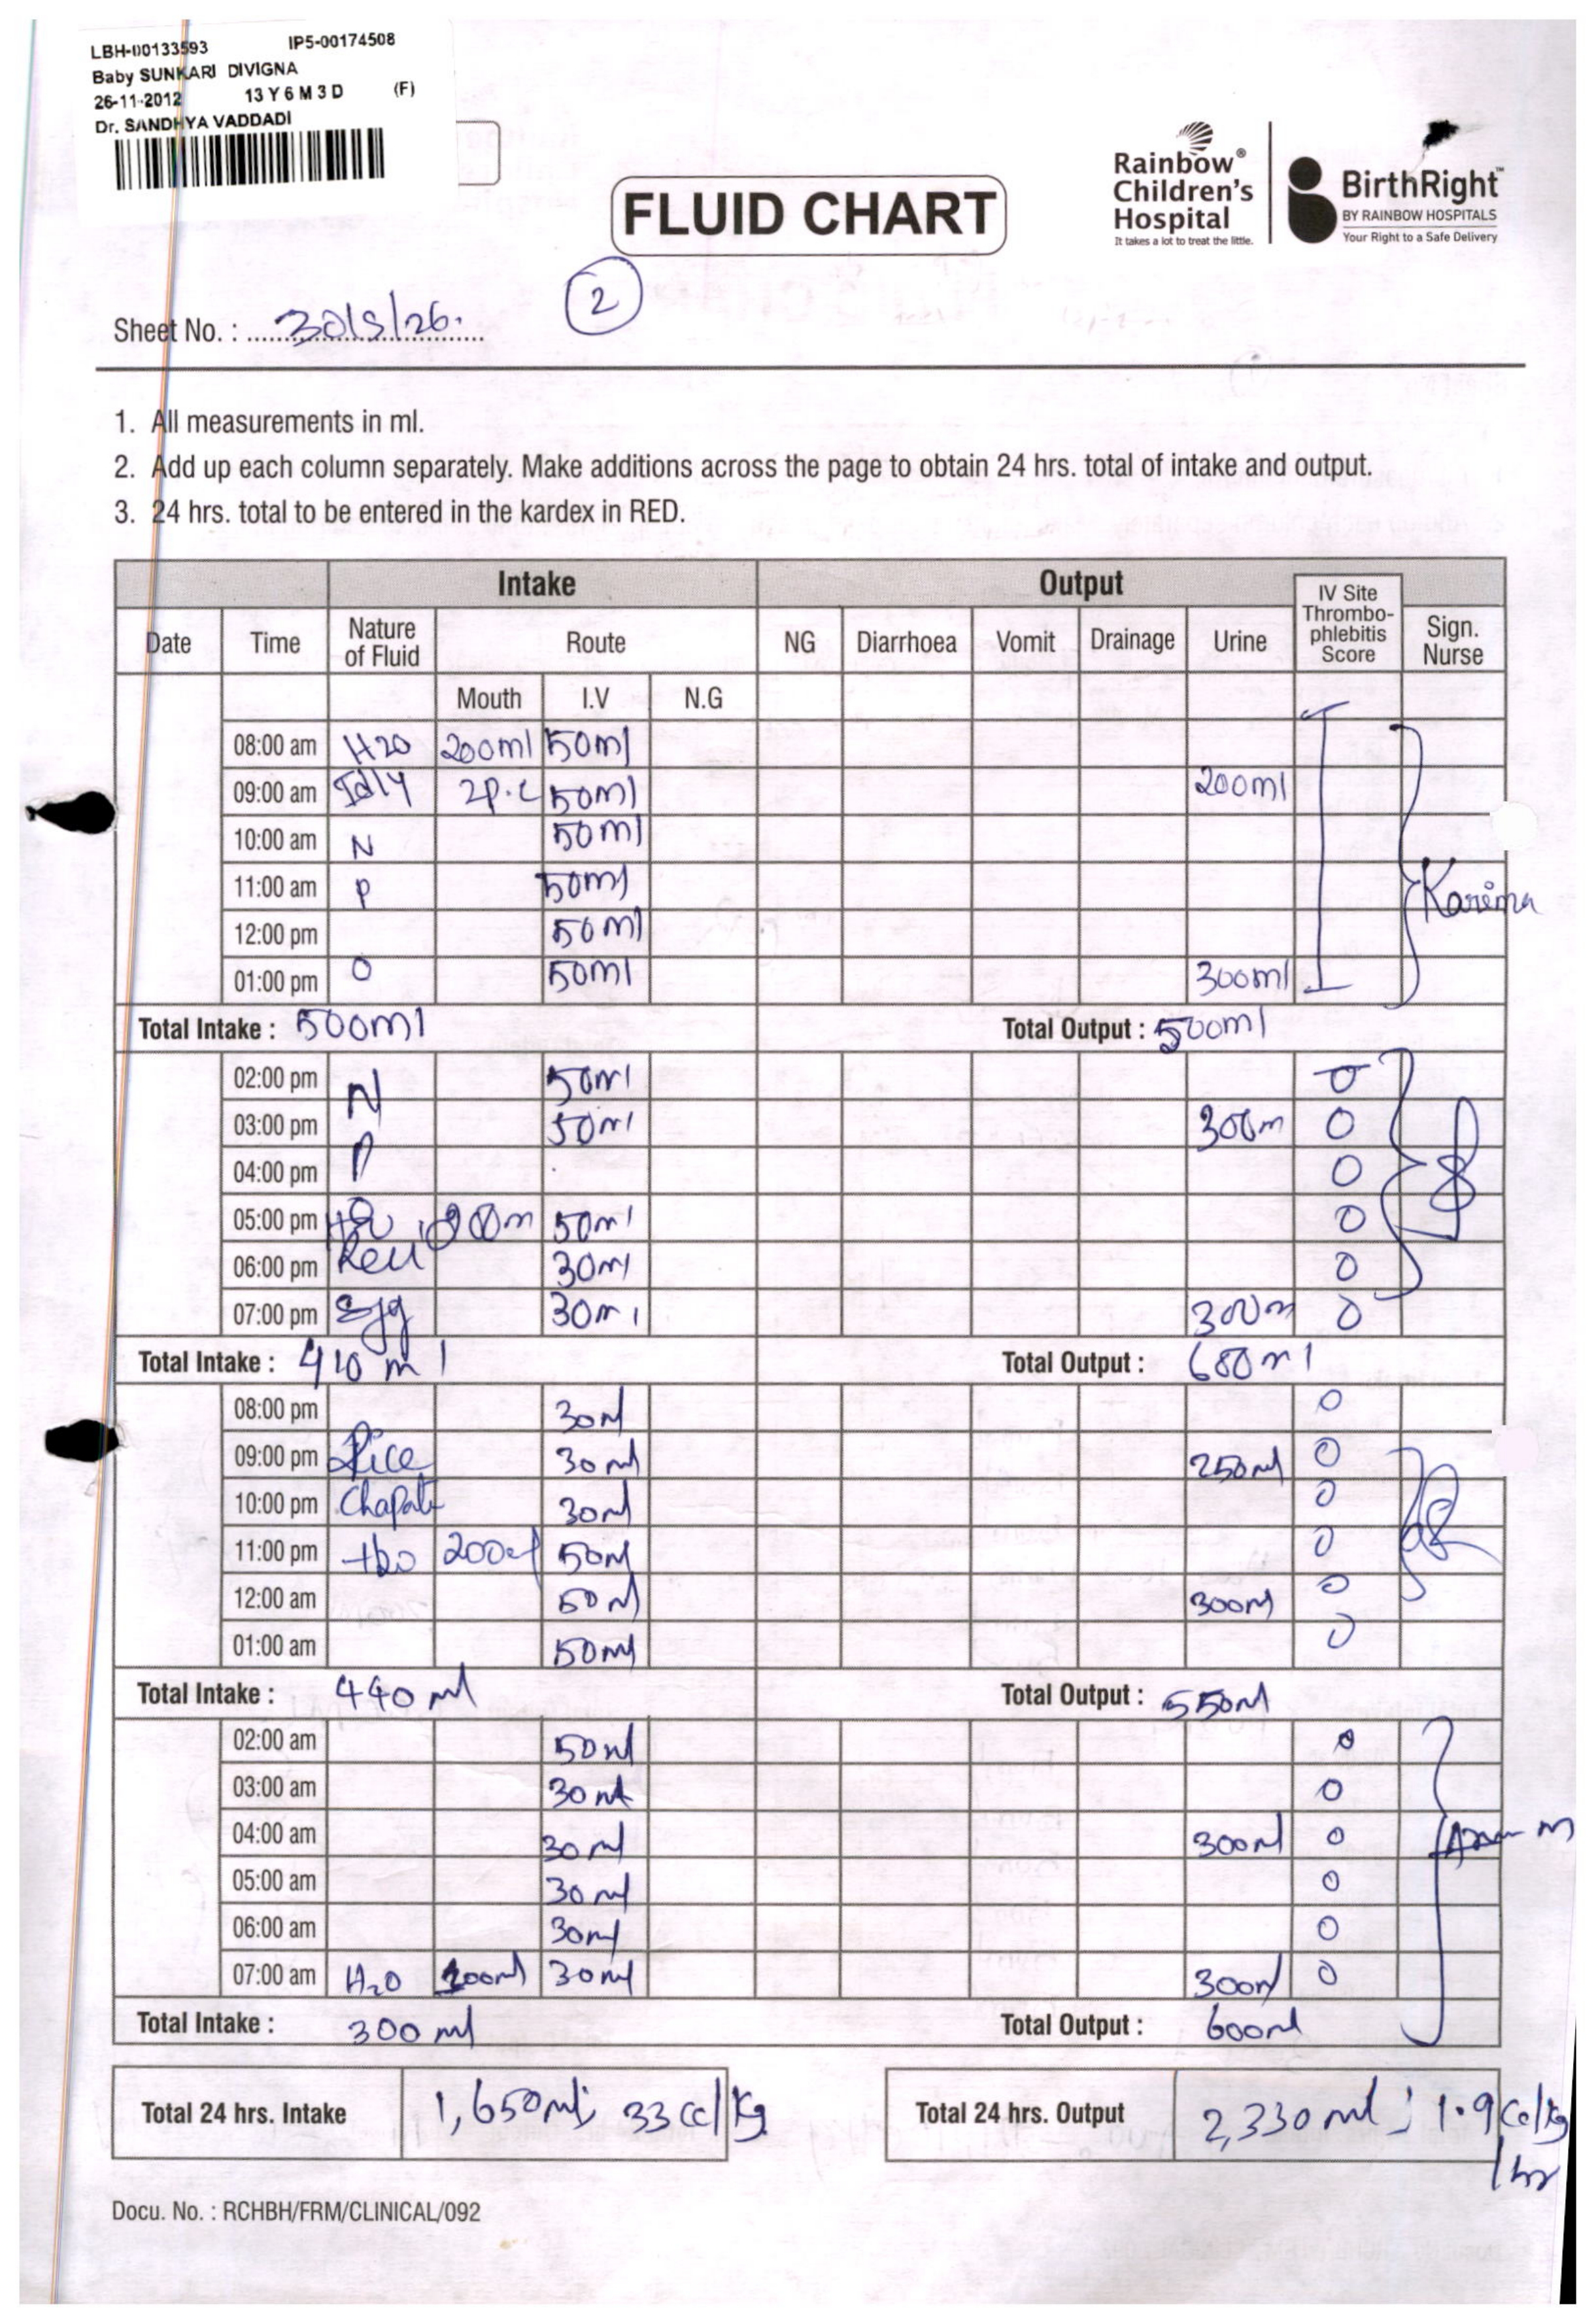 LBH-00133593 IP5-00174508
Baby SUNKARI DIVIGNA
26-11-2012 13 Y 6 M 3 D (F)
Dr. SANDHYA VADDADI
Rainbow® Children's Hospital
It takes a lot to treat the little.
BirthRight™
BY RAINBOW HOSPITALS
Your Right to a Safe Delivery
FLUID CHART
2
Sheet No. : 30/5/26.
1. All measurements in ml.
2. Add up each column separately. Make additions across the page to obtain 24 hrs. total of intake and output.
3. 24 hrs. total to be entered in the kardex in RED.
Intake Output
Date Time Nature of Fluid Route NG Diarrhoea Vomit Drainage Urine IV Site Thrombo-phlebitis Score Sign. Nurse
Mouth I.V N.G
08:00 am H20 200ml 50ml
09:00 am Idly 2p.c 50ml 200ml
10:00 am N 50ml
11:00 am P 50ml Karima
12:00 pm 50ml
01:00 pm O 50ml 300ml
Total Intake : 500ml Total Output : 500ml
02:00 pm N 50ml 0
03:00 pm 50ml 300m 0
04:00 pm P 0
05:00 pm 50ml 0
06:00 pm 30ml 0
07:00 pm Egg 30ml 300m 0
Total Intake : 410 ml Total Output : 680ml
08:00 pm 30ml 0
09:00 pm Rice 30ml 250ml 0
10:00 pm Chapati 30ml 0
11:00 pm H20 200ml 50ml 0
12:00 am 50ml 300ml 0
01:00 am 50ml 0
Total Intake : 440 ml Total Output : 550ml
02:00 am 50ml 0
03:00 am 30ml 0
04:00 am 30ml 300ml 0
05:00 am 30ml 0
06:00 am 30ml 0
07:00 am H2O 100ml 30ml 300ml 0
Total Intake : 300 ml Total Output : 600ml
Total 24 hrs. Intake 1,650ml; 33cc/kg Total 24 hrs. Output 2,330ml; 1.9cc/kg/hr
Docu. No. : RCHBH/FRM/CLINICAL/092